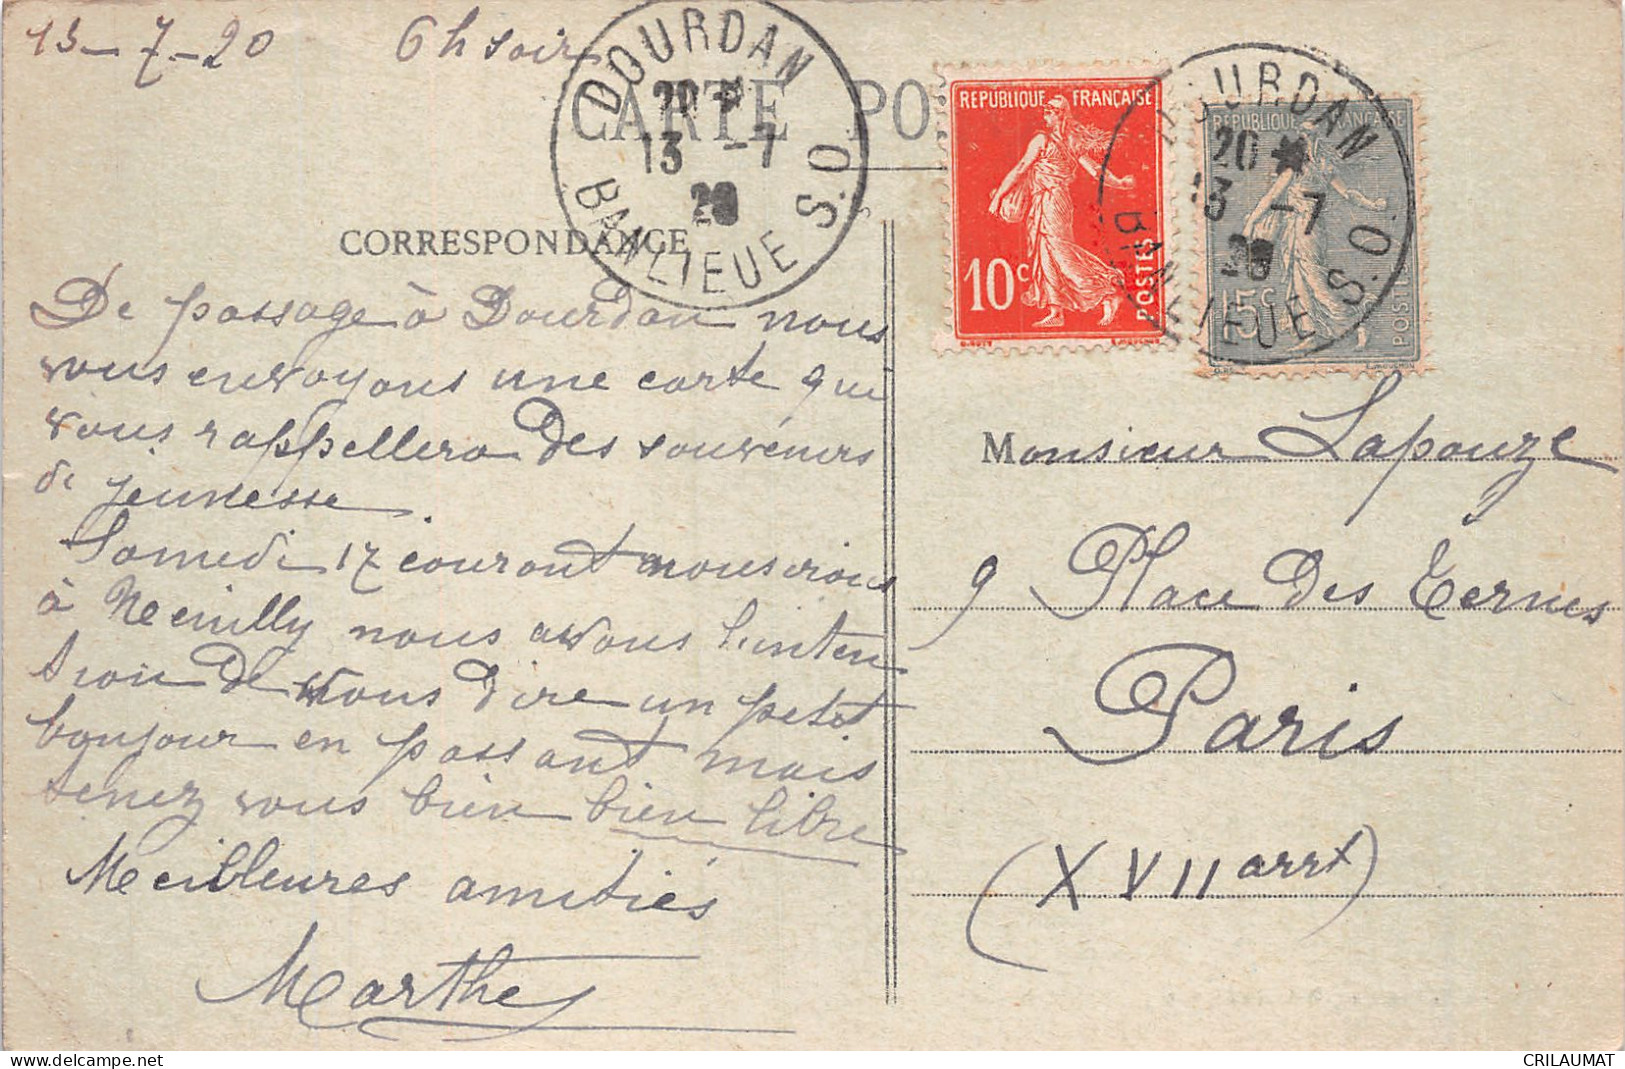 13-7-20 6h soir
CARTE PO
DOURDAN
20 *
13 -7
20
BANLIEUE S.O.
REPUBLIQUE FRANÇAISE
10c
POSTES
DOURDAN
20 *
13 -7
20
BANLIEUE S.O.
REPUBLIQUE FRANÇAISE
15c
POSTES
CORRESPONDANCE
De passage à Dourdan nous
vous envoyons une carte qui
vous rappellera des souvenirs
de jeunesse.
Samedi 17 courant nous irons
à Neuilly nous avons l'inten
tion de vous dire un petit
bonjour en passant mais
tenez vous bien bien libre
Meilleures amitiés
Marthe
Monsieur Lapouze
9 Place des Ternes
Paris
(XVII arrt)
delcampe.net
CRILAUMAT